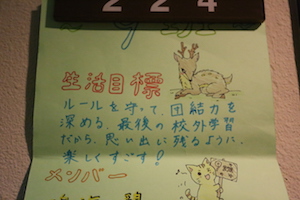 224
生活目標
ルールを守って、団結力を
深める。最後の校外学習
だから、思い出に残るように、
楽しくすごす!
メンバー